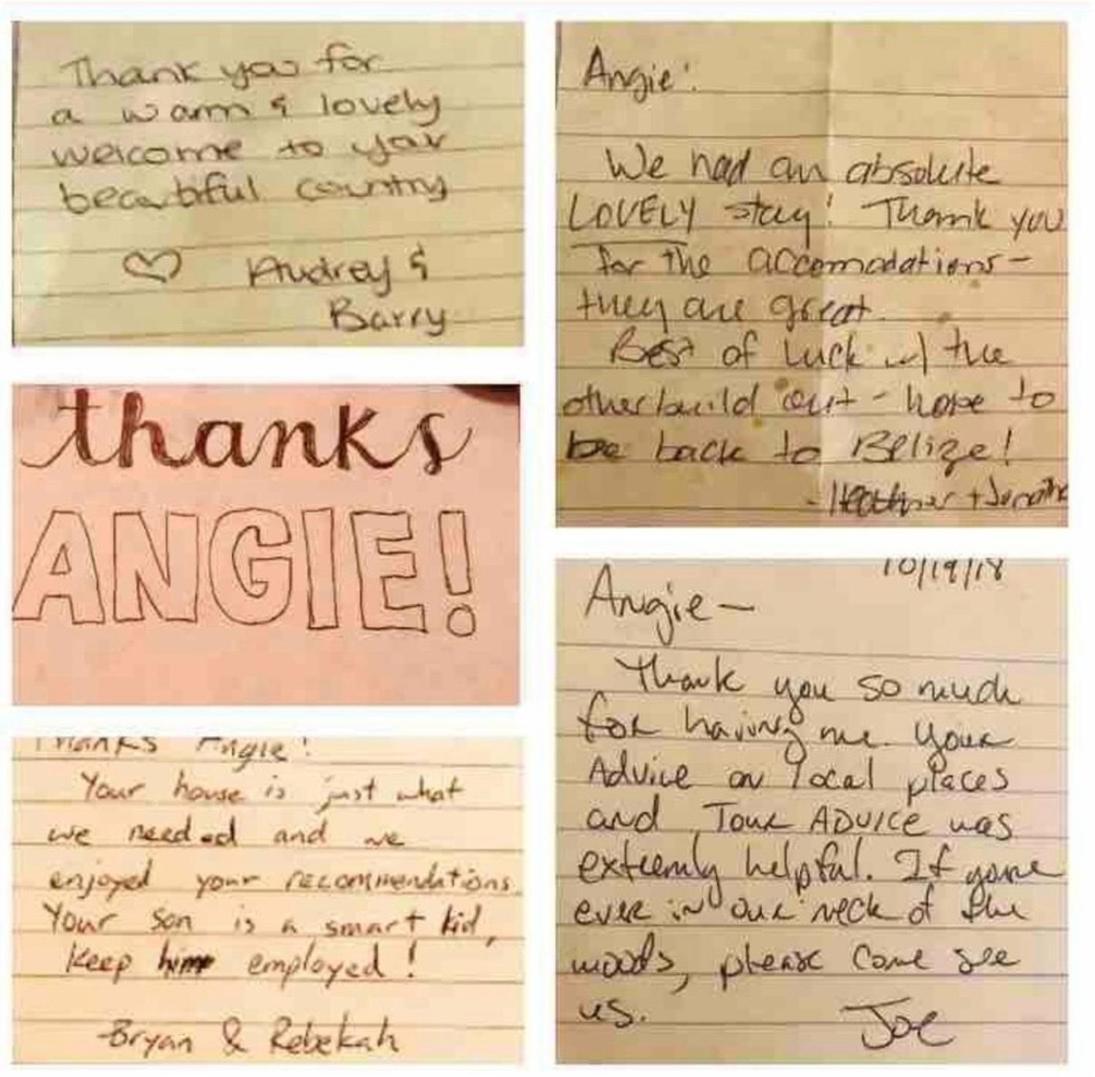 Thank you for
a warm & lovely
welcome to your
beautiful country
♡ Audrey &
Barry
thanks
ANGIE!
Thanks Angie!
Your house is just what
we needed and we
enjoyed your recommendations.
Your son is a smart kid,
keep him employed!
Bryan & Rebekah
Angie:
We had an absolute
LOVELY stay! Thank you
for the accomodations-
they are great.
Best of luck w/ the
other build out - hope to
be back to Belize!
- Heather +
10/19/18
Angie—
Thank you so much
for having me. Your
Advice on local places
and Tour ADVICE was
extremly helpful. If your
ever in our neck of the
woods, please come see
us.
Joe